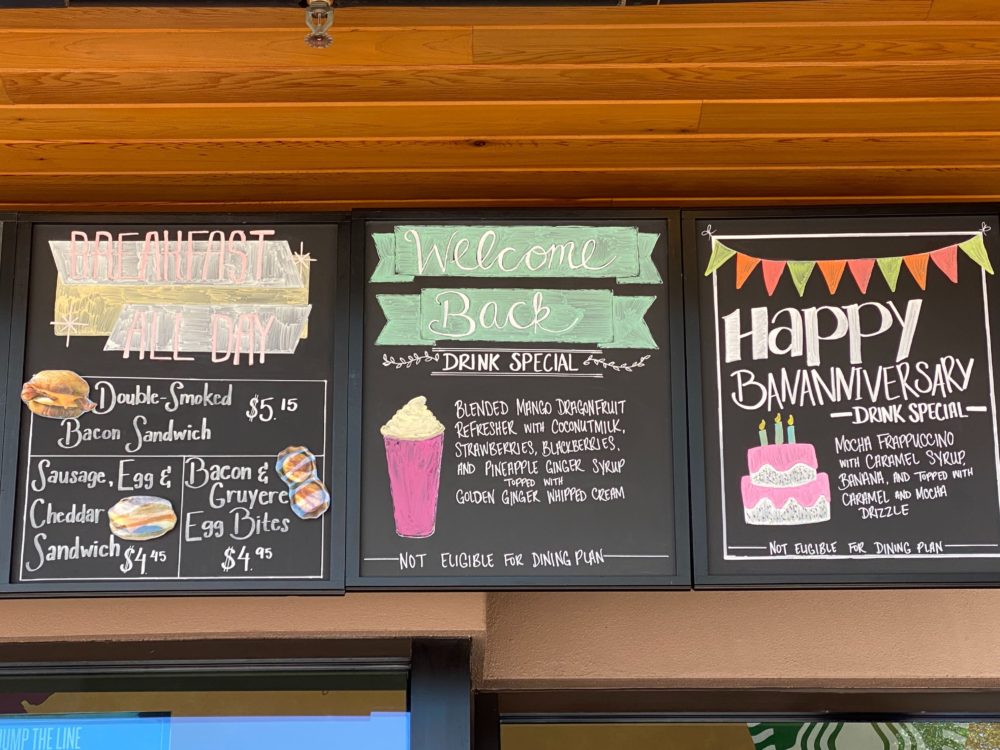 BREAKFAST
ALL DAY
Double-Smoked
Bacon Sandwich
$5.15
Sausage, Egg &
Cheddar
Sandwich $4.45
Bacon &
Gruyere
Egg Bites
$4.95
Welcome
Back
DRINK SPECIAL
BLENDED MANGO DRAGONFRUIT
REFRESHER WITH COCONUTMILK,
STRAWBERRIES, BLACKBERRIES,
AND PINEAPPLE GINGER SYRUP
TOPPED WITH
GOLDEN GINGER WHIPPED CREAM
NOT ELIGIBLE FOR DINING PLAN
HAPPY
BANANNIVERSARY
DRINK SPECIAL
MOCHA FRAPPUCCINO
WITH CARAMEL SYRUP,
BANANA, AND TOPPED WITH
CARAMEL AND MOCHA
DRIZZLE
NOT ELIGIBLE FOR DINING PLAN
JUMP THE LINE